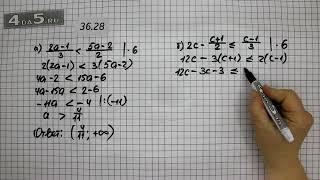 4DA5.RU
36.28
а) (2a-1)/3 < (5a-2)/2 | · 6
2(2a-1) < 3(5a-2)
4a-2 < 15a-6
4a-15a < 2-6
-11a < -4 | :(-11)
a > 4/11
Ответ: (4/11; +∞)
б) 2c - (c+1)/2 ≤ (c-1)/3 | · 6
12c - 3(c+1) ≤ 2(c-1)
12c - 3c - 3 ≤